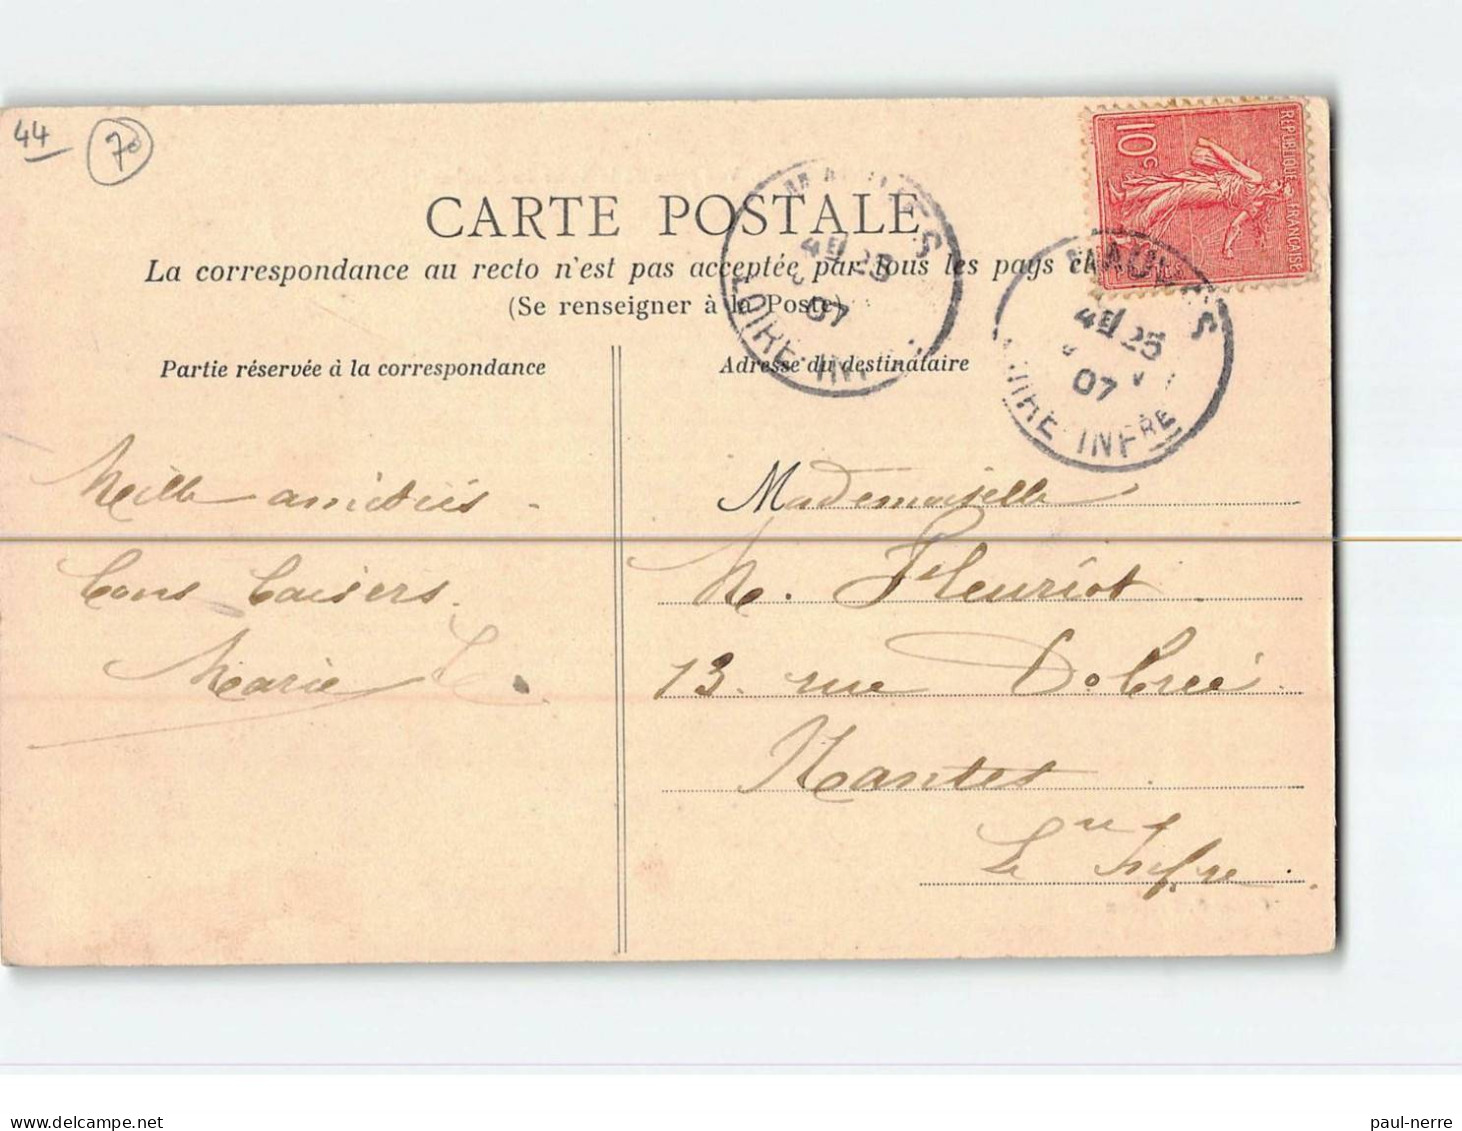 44 70
RÉPUBLIQUE FRANÇAISE
10c
CARTE POSTALE
La correspondance au recto n'est pas acceptée par tous les pays
(Se renseigner à la Poste)
Partie réservée à la correspondance
Adresse du destinataire
4E 25
07
LOIRE-INF
MAUVES
4E 25
07
LOIRE-INFRE
Mille amitiés -
Bons baisers.
Marie L.
Mademoiselle
M. Fleuriot
13. rue Dobreé
Nantes
Lre Infre
paul-nerre